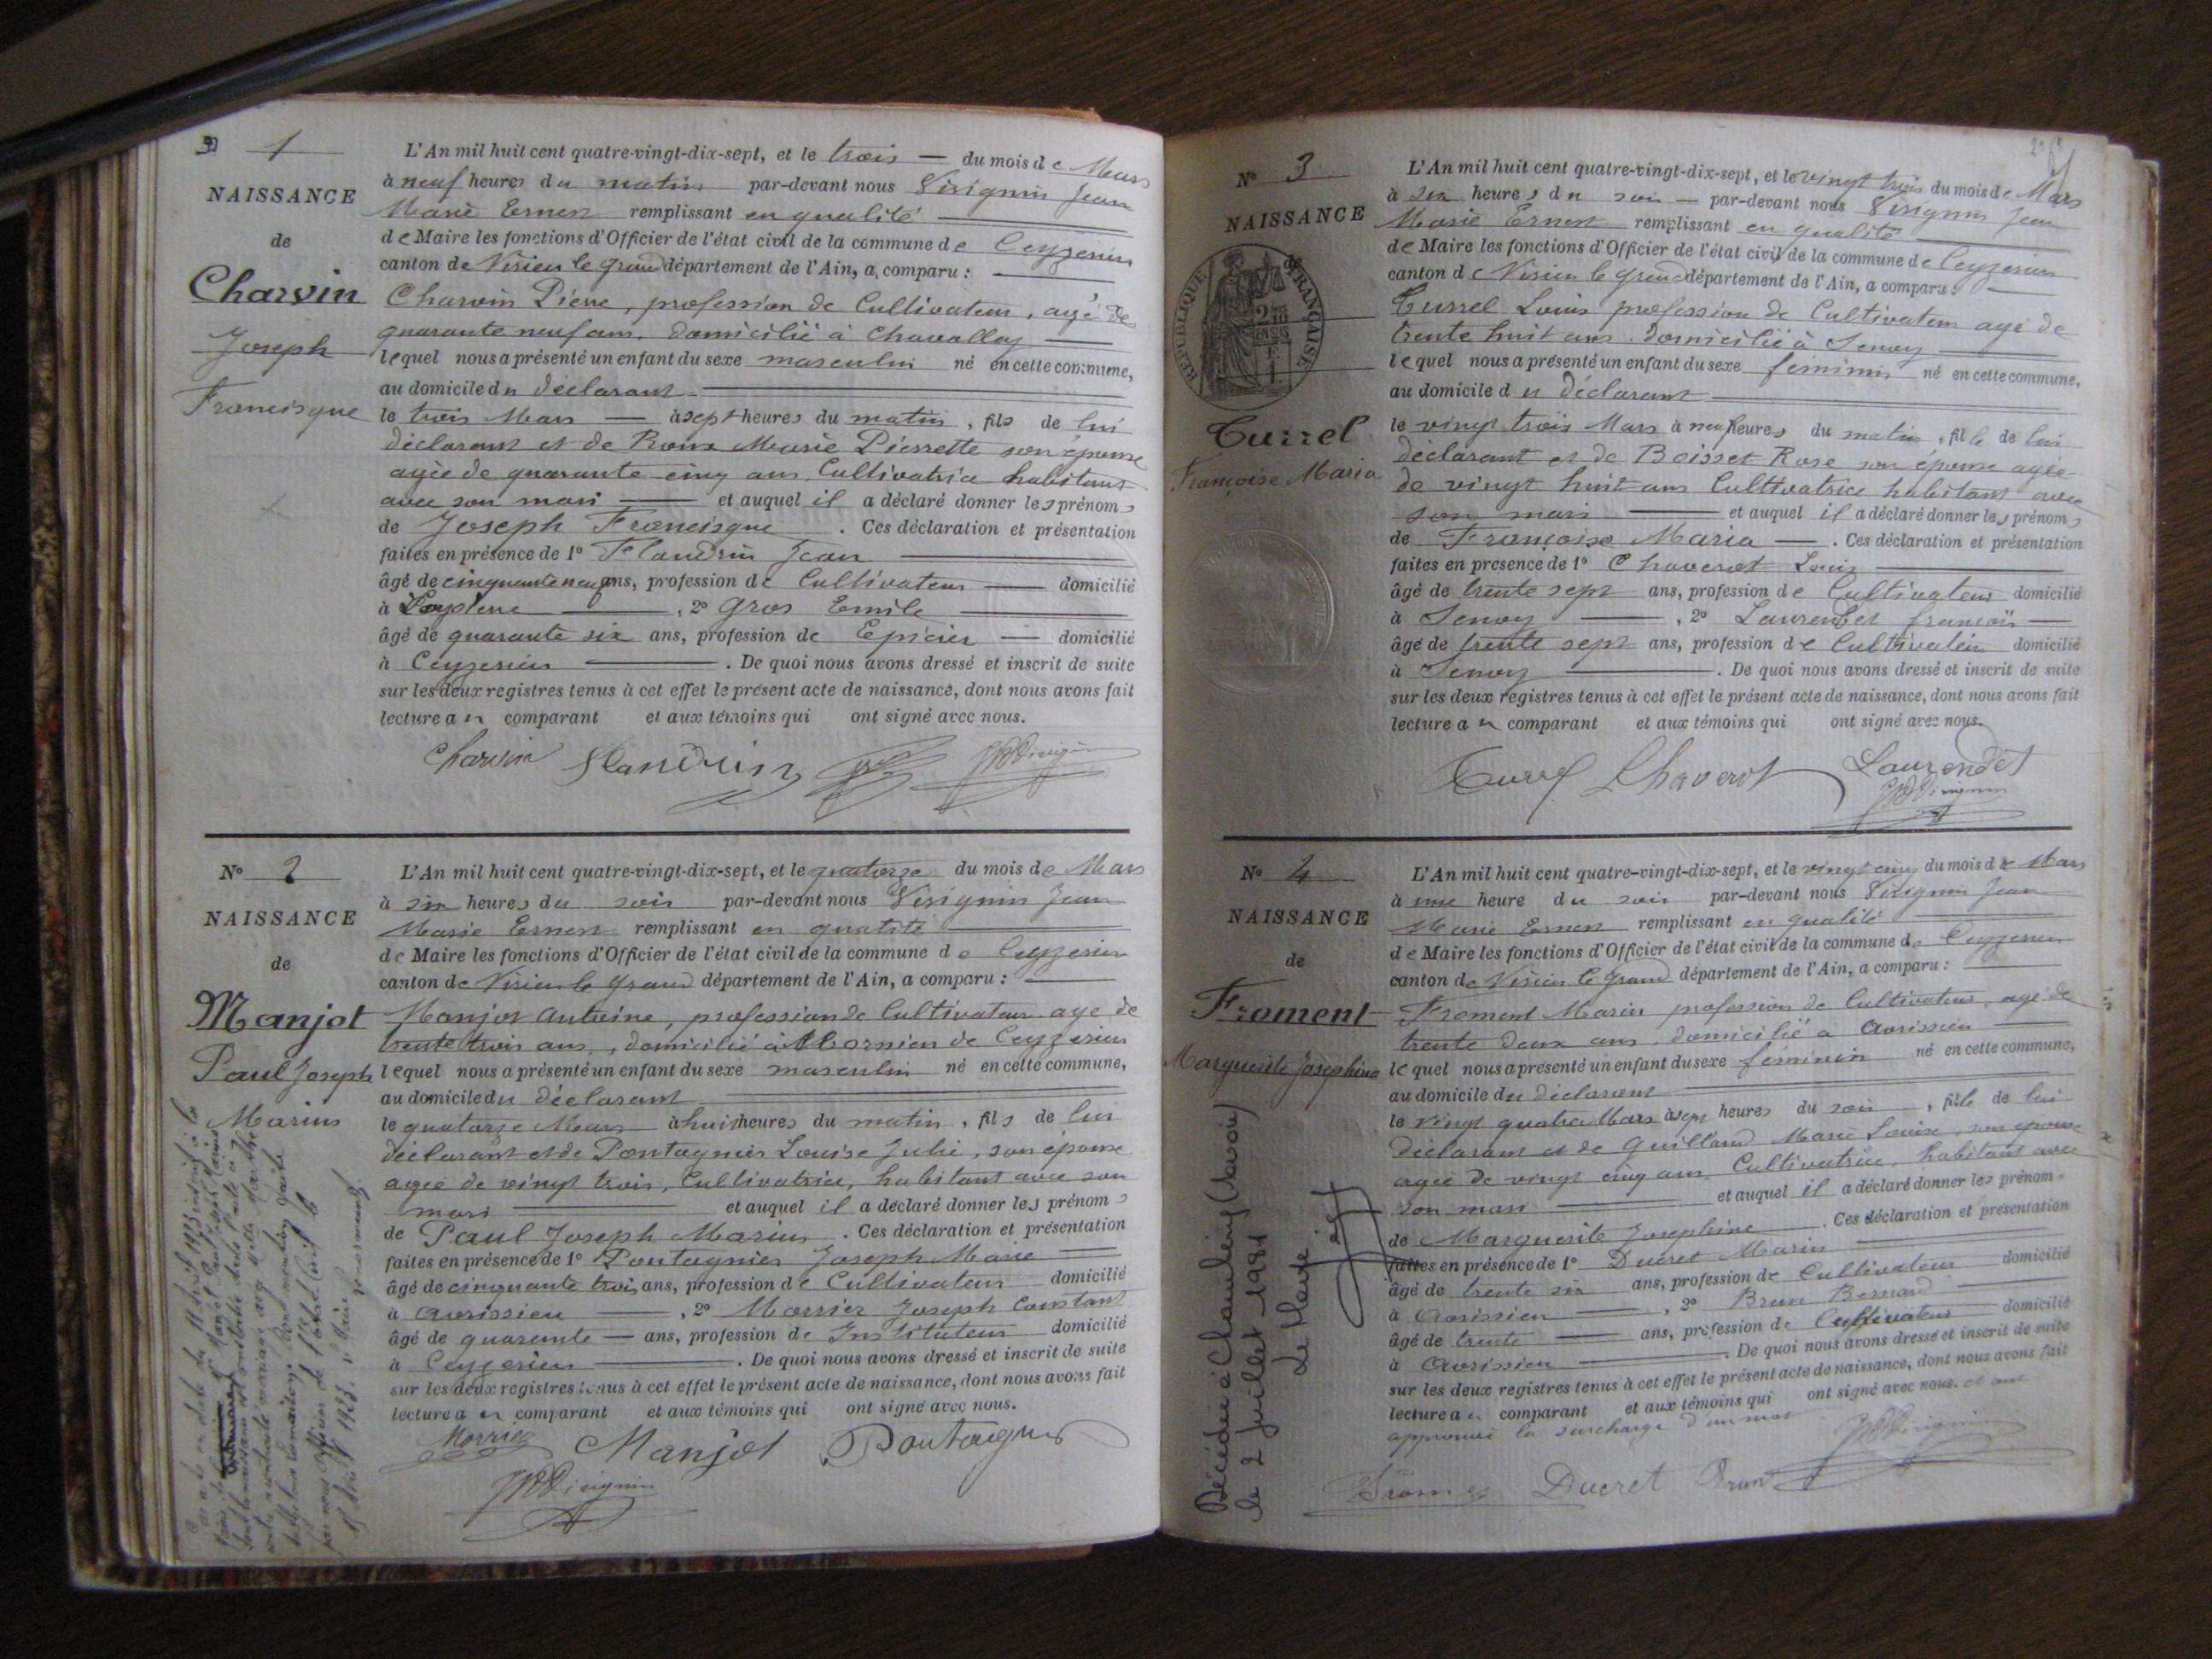 1
NAISSANCE
de
Charvin
Joseph
Francisque
L'An mil huit cent quatre-vingt-dix-sept, et le trois — du mois de Mars
à neuf heures du matin par-devant nous Virignin Jean
Marie Ernest remplissant en qualité
de Maire les fonctions d'Officier de l'état civil de la commune de Ceyzerieu
canton de Virieu le grand département de l'Ain, a comparu :
Charvin Pierre, profession de Cultivateur, agé de
quarante neuf ans, domicilié à Chavolley
lequel nous a présenté un enfant du sexe masculin né en cette commune,
au domicile du déclarant
le trois Mars — à sept heures du matin, fils de lui
déclarant et de Roux Marie Pierrette son épouse
agée de quarante cinq ans Cultivatrice habitant
avec son mari — et auquel il a déclaré donner les prénoms
de Joseph Francisque . Ces déclaration et présentation
faites en présence de 1º Flandrin Jean
âgé de cinquante neuf ans, profession de Cultivateur — domicilié
à , 2º Gros Emile
âgé de quarante six ans, profession de Epicier — domicilié
à Ceyzerieu . De quoi nous avons dressé et inscrit de suite
sur les deux registres tenus à cet effet le présent acte de naissance, dont nous avons fait
lecture au comparant et aux témoins qui ont signé avec nous.
Charvin Flandrin JM Virignin
Nº 2
NAISSANCE
de
Manjot
Paul Joseph
Marius
L'An mil huit cent quatre-vingt-dix-sept, et le quatorze du mois de Mars
à six heures du soir par-devant nous Virignin Jean
Marie Ernest remplissant en qualité
de Maire les fonctions d'Officier de l'état civil de la commune de Ceyzerieu
canton de Virieu le grand département de l'Ain, a comparu :
Manjot Antoine, profession de Cultivateur agé de
trente trois ans, domicilié à Mornieu de Ceyzerieu
lequel nous a présenté un enfant du sexe masculin né en cette commune,
au domicile du déclarant
le quatorze Mars à huit heures du matin, fils de lui
déclarant et de Pontagnier Louise Julie, son épouse
agée de vingt trois, Cultivatrice, habitant avec son
mari et auquel il a déclaré donner les prénoms
de Paul Joseph Marius . Ces déclaration et présentation
faites en présence de 1º Pontagnier Joseph Marie
âgé de cinquante trois ans, profession de Cultivateur domicilié
à Avrissieu , 2º Morrier Joseph Constant
âgé de quarante — ans, profession de Instituteur domicilié
à Ceyzerieu . De quoi nous avons dressé et inscrit de suite
sur les deux registres tenus à cet effet le présent acte de naissance, dont nous avons fait
lecture au comparant et aux témoins qui ont signé avec nous.
Morrier Manjot Pontagnier
JM Virignin
Nº 3
NAISSANCE
RÉPUBLIQUE FRANÇAISE
Currel
Françoise Maria
L'An mil huit cent quatre-vingt-dix-sept, et le vingt trois du mois de Mars
à six heures du soir — par-devant nous Virignin Jean
Marie Ernest remplissant en qualité
de Maire les fonctions d'Officier de l'état civil de la commune de Ceyzerieu
canton de Virieu le grand département de l'Ain, a comparu :
Currel Louis profession de Cultivateur agé de
trente huit ans domicilié à Senoy
lequel nous a présenté un enfant du sexe feminin né en cette commune,
au domicile du déclarant
le vingt trois Mars à neuf heures du matin, fille de lui
déclarant et de Boisset Rose son épouse agée
de vingt huit ans Cultivatrice habitant avec
son mari et auquel il a déclaré donner les prénoms
de Françoise Maria — . Ces déclaration et présentation
faites en présence de 1º Chaverot Louis
âgé de trente sept ans, profession de Cultivateur domicilié
à Senoy , 2º Laurendet françois —
âgé de trente sept ans, profession de Cultivateur domicilié
à Senoy . De quoi nous avons dressé et inscrit de suite
sur les deux registres tenus à cet effet le présent acte de naissance, dont nous avons fait
lecture au comparant et aux témoins qui ont signé avec nous.
Currel Chaverot Laurendet
JM Virignin
Nº 4
NAISSANCE
de
Froment
Marguerite Josephine
Décédée à Chambéry (Savoie)
le 2 juillet 1981
Le Maire
L'An mil huit cent quatre-vingt-dix-sept, et le vingt cinq du mois de Mars
à une heure du soir par-devant nous Virignin Jean
Marie Ernest remplissant en qualité
de Maire les fonctions d'Officier de l'état civil de la commune de Ceyzerieu
canton de Virieu le grand département de l'Ain, a comparu :
Froment Marin profession de Cultivateur, agé de
trente deux ans domicilié à Avrissieu
lequel nous a présenté un enfant du sexe feminin né en cette commune,
au domicile du déclarant
le vingt quatre Mars à sept heures du soir, fille de lui
déclarant et de Guilland Marie Louise, son épouse
agée de vingt cinq ans Cultivatrice, habitant avec
son mari et auquel il a déclaré donner les prénoms
de Marguerite Josephine . Ces déclaration et présentation
faites en présence de 1º Ducret Marin
âgé de trente six ans, profession de Cultivateur domicilié
à Avrissieu , 2º Brun Bernard
âgé de trente ans, profession de Cultivateur domicilié
à Avrissieu . De quoi nous avons dressé et inscrit de suite
sur les deux registres tenus à cet effet le présent acte de naissance, dont nous avons fait
lecture au comparant et aux témoins qui ont signé avec nous. et ont
approuvé la surcharge d'un mot
JM Virignin
Froment Ducret Brun